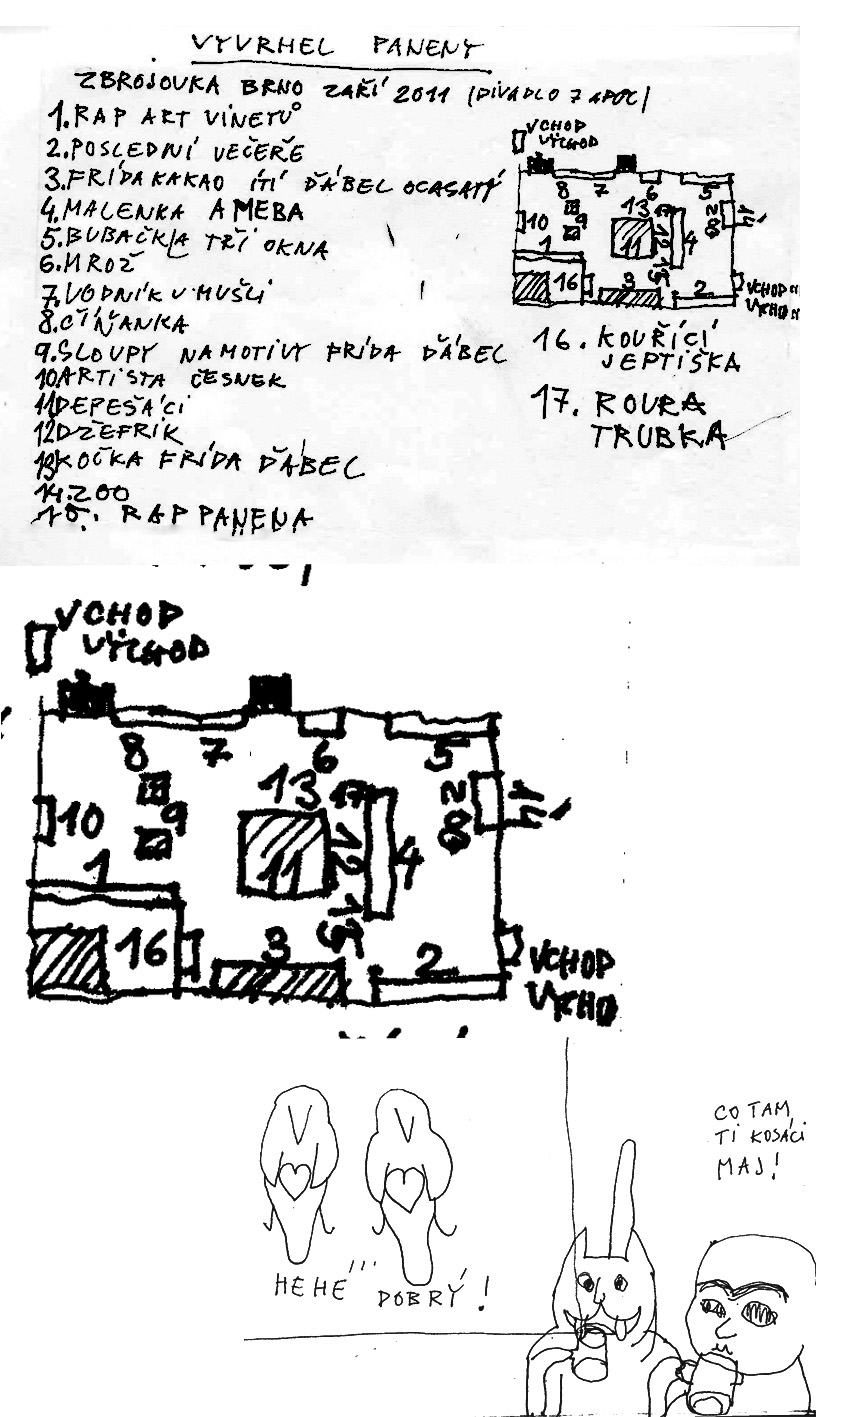 VÝVRHEL PANENY
ZBROJOVKA BRNO ZAŘÍ 2011 (DIVADLO 7 APOC)
1. RAP ART VINETŮ
2. POSLEDNÍ VEČEŘE
3. FRÍDA KAKAO ITÍ ĎÁBEL OCASATÝ
4. MALENKA AMEBA
5. BUBAČKLA TŘI OKNA
6. MROŽ
7. VODNÍK V MUŠLI
8. ČÍŇANKA
9. SLOUPY NA MOTIVY FRÍDA ĎÁBEL
10 ARTISTA ČESNEK
11 DEPEŠÁCI
12 DŽEFRIK
13 KOČKA FRÍDA ĎÁBEL
14. 200
15. RAP PANENA
VCHOD
VÝCHOD
8 7 6 5
13 17
10 9
11 12 4
1
16 3 15 2
VCHOD
VÝCHO
16. KOUŘÍCÍ
JEPTIŠKA
17. ROURA
TRUBKA
VCHOD
VÝCHOD
8 7 6 5
13 17 200 14
10 9
11 12 4
1
16 3 15 2
VCHOD
VÝCHO
CO TAM
TI KOSÁCI
MAJ!
HEHÉ''' DOBRÝ!